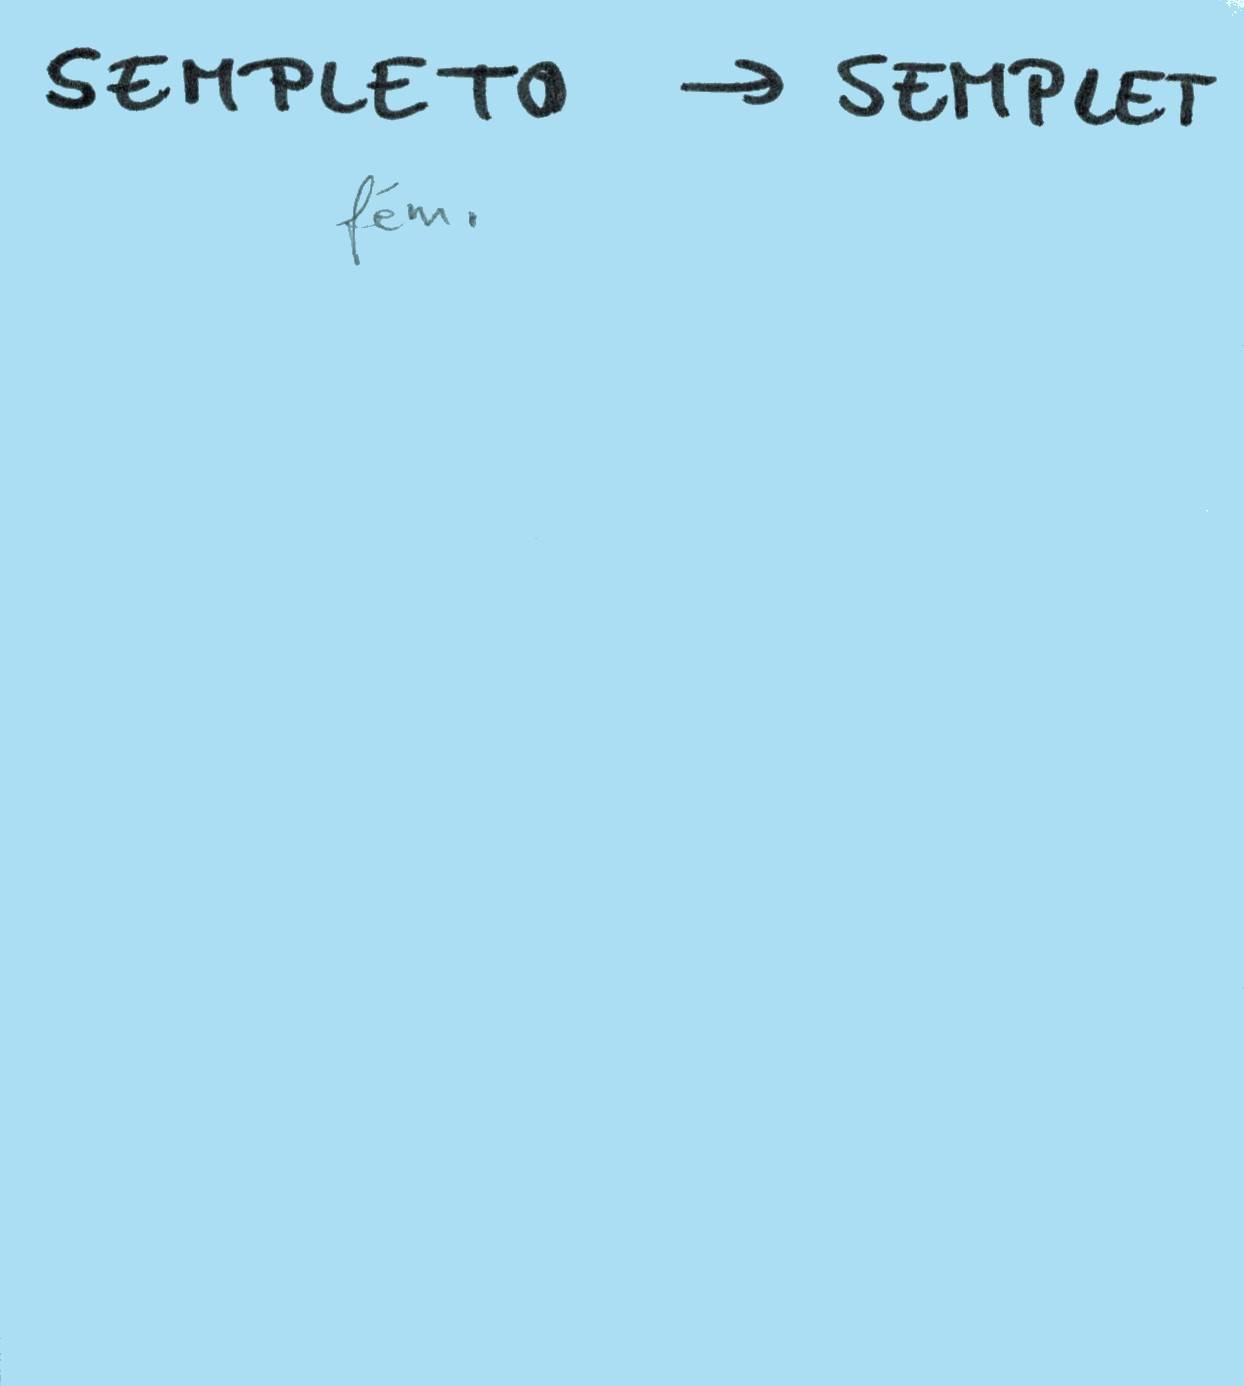 SEMPLETO → SEMPLET
fém.